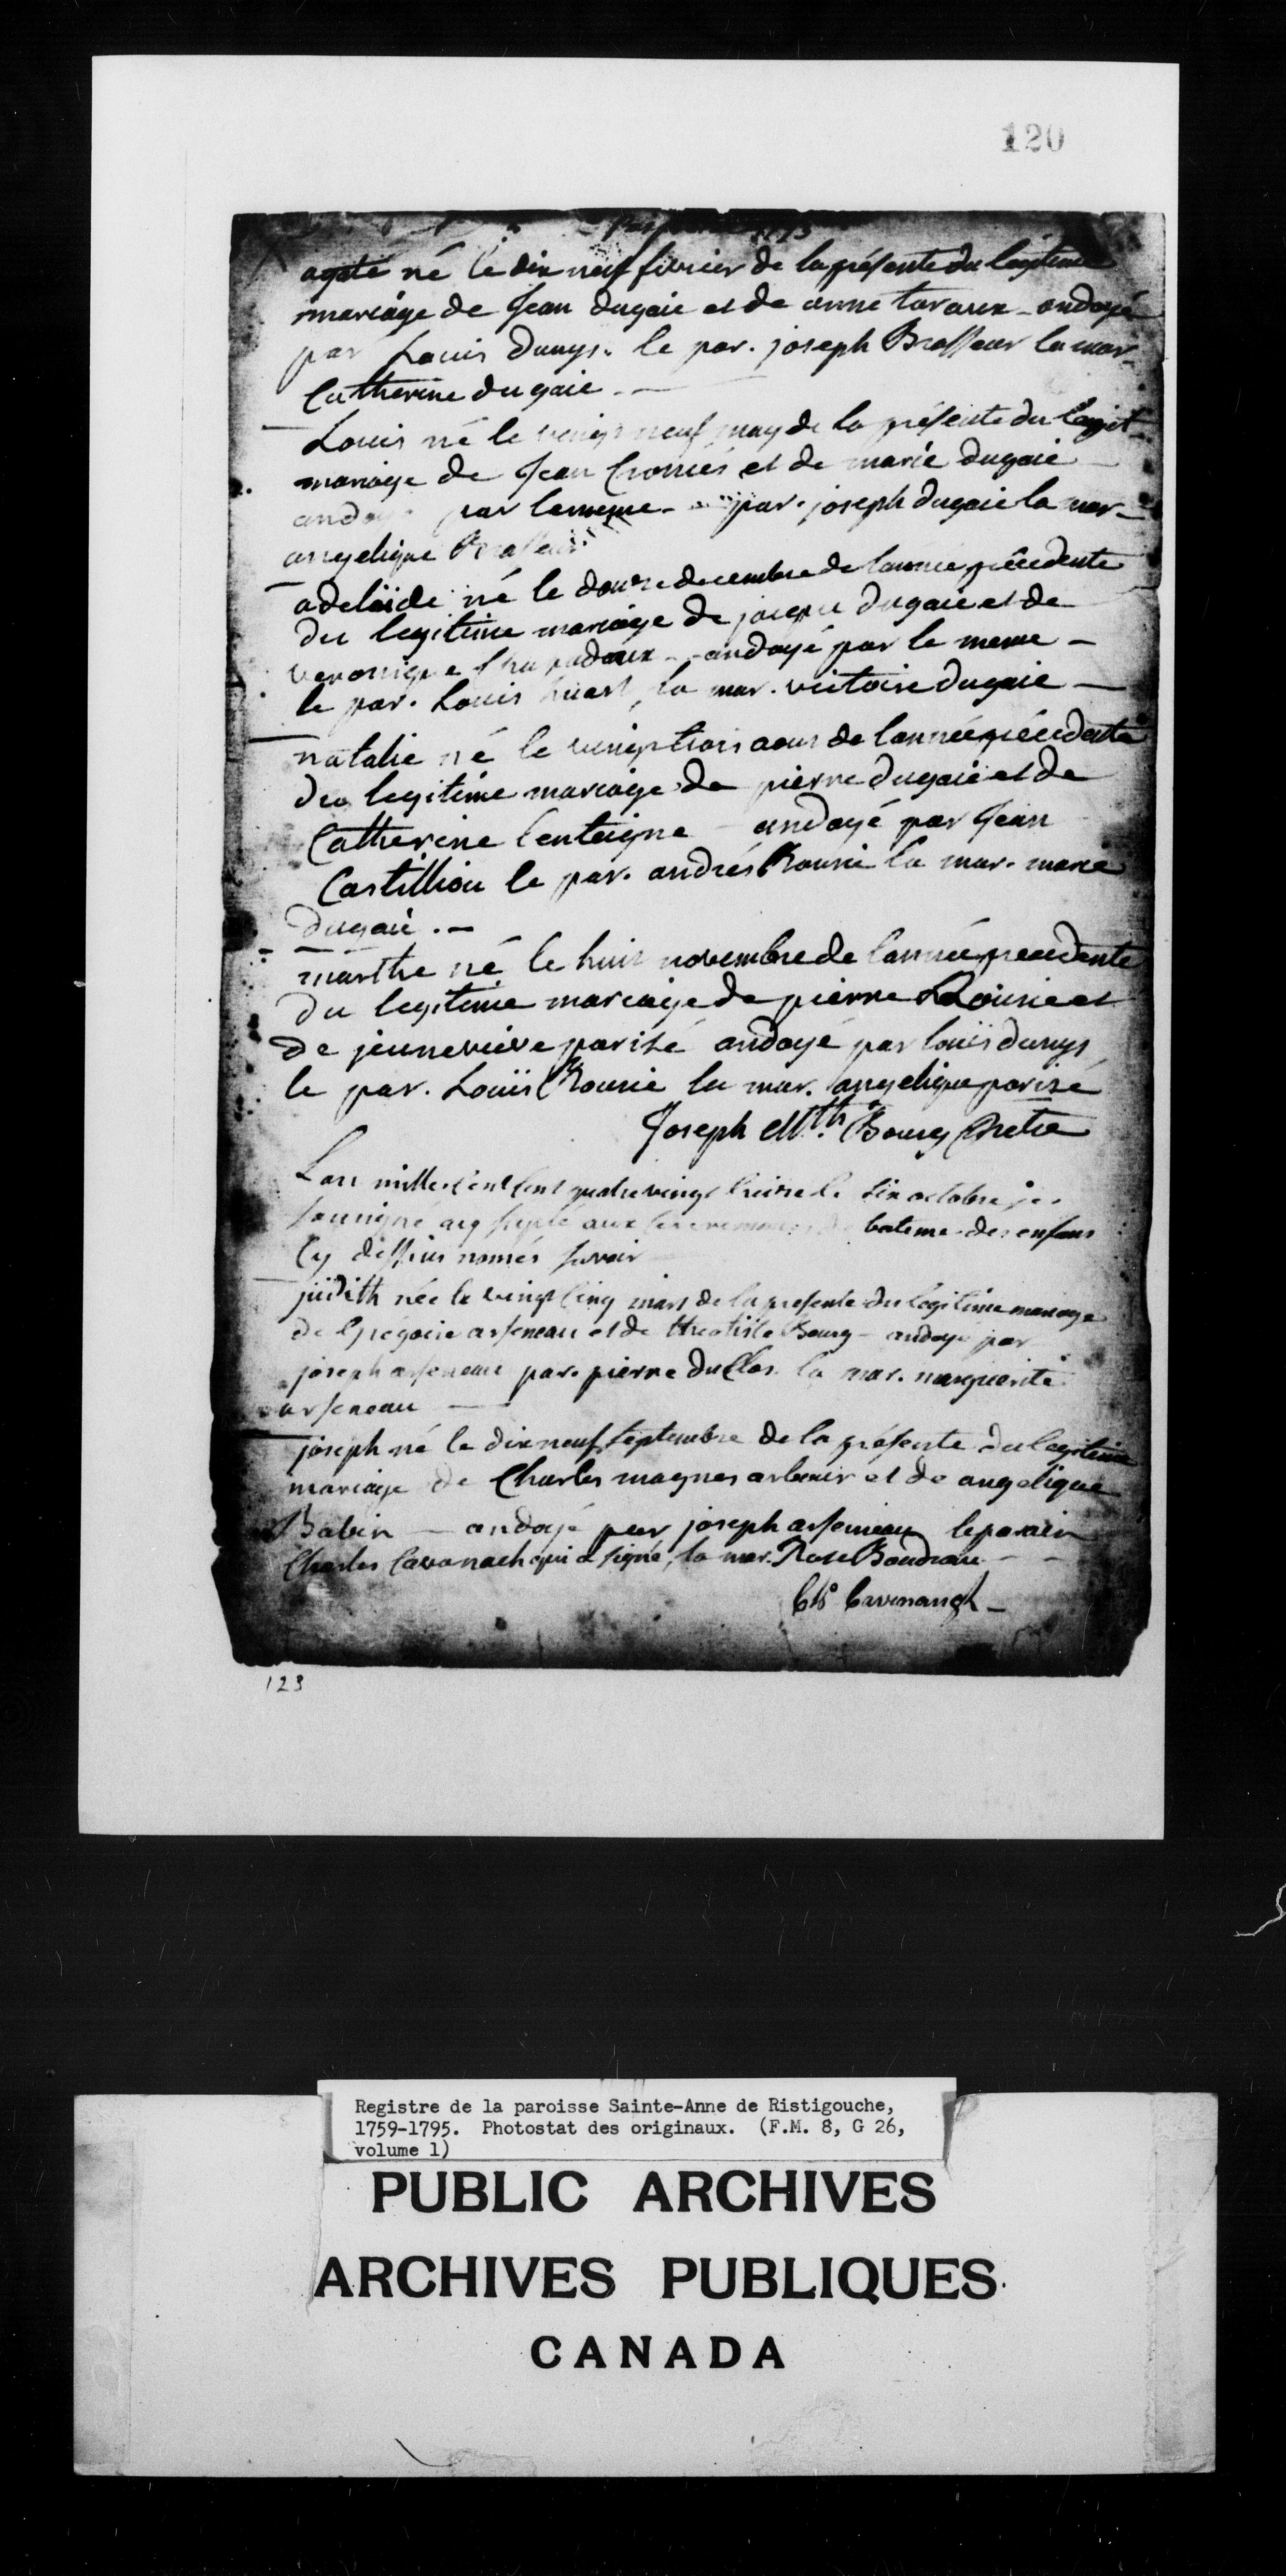 120
agate né le dix neuf fevrier de la présente du legitime
mariage de Jean dugaie et de anne taraux - ondoyé
par Louis dunys. le par. joseph Brasseur la mar.
Catherine dugaie -
Louis né le vingt neuf may de la présente du legit.
mariage de Jean et de marie dugaie
ondoyé par le meme - par. joseph dugaie la mar -
angelique Brasseur
adelaide né le douze decembre de lannée précedente
du legitime mariage de joseph dugaie et de
veronique - ondoyé par le meme -
le par. Louis huart, la mar. victoire dugaie -
natalie né le vingt trois aout de lannée précédente
du legitime mariage de pierre dugaie et de
Catherine lentaigne - ondoyé par Jean
Castilliou le par. andrés la mar. marie
dugaie . -
marthe né le huit novembre de lannée precedente
du legitime mariage de pierre et
de jeuneviéve parisé ondoyé par louis dunys
le par. Louïs la mar. angelique parisé
Joseph Mth. Bourg Pretre
Lan mille sept cent quatre vingt treize le six octobre je
sousigné ay supléé aux ceremonies de bateme des enfans
Cy dessus només savoir
judith née le vingt cinq mars de la presente du legitime mariage
de Gregoire arseneau et de theotiste Bourg - ondoyé par
joseph arseneau par. pierre duClos la mar. marguerite
arseneau -
joseph né le dix neuf septembre de la présente du legitime
mariage de Charles magnes et de angelique
Babin - ondoyé par joseph arseneau le parain
Charles Cavanach qui a signé, la mar. Rose Boudreau - -
Chs Cavenaugh -
123
Registre de la paroisse Sainte-Anne de Ristigouche,
1759-1795. Photostat des originaux. (F.M. 8, G 26,
volume 1)
PUBLIC ARCHIVES
ARCHIVES PUBLIQUES
CANADA